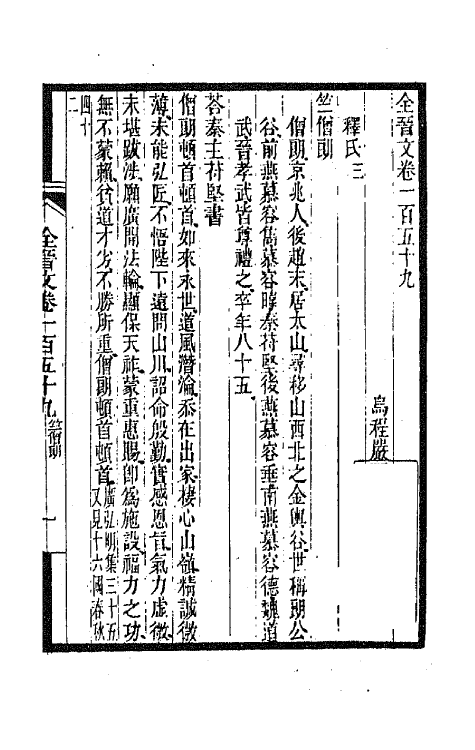 全晉文卷一百五十九
烏程嚴
釋氏三
竺僧朗
僧朗京兆人後趙末居太山尋移山西北之金輿谷世稱朗公
谷前燕慕容儁慕容暐秦苻堅後燕慕容垂南燕慕容德魏道
武晉孝武皆尊禮之卒年八十五
荅秦主苻堅書
僧朗頓首頓首如來永世道風潛淪忝在出家棲心山嶺精誠微
薄未能弘匠不悟陛下遠問山川詔命殷勤實感恩旨氣力虛微
未堪跋涉願廣開法輪顯保天祚蒙重惠賜卽爲施設福力之功
無不蒙賴貧道才劣不勝所重僧朗頓首頓首廣弘明集三十五
又見十六國春秋
四十
二
全晉文卷一百五十九 竺僧朗
一